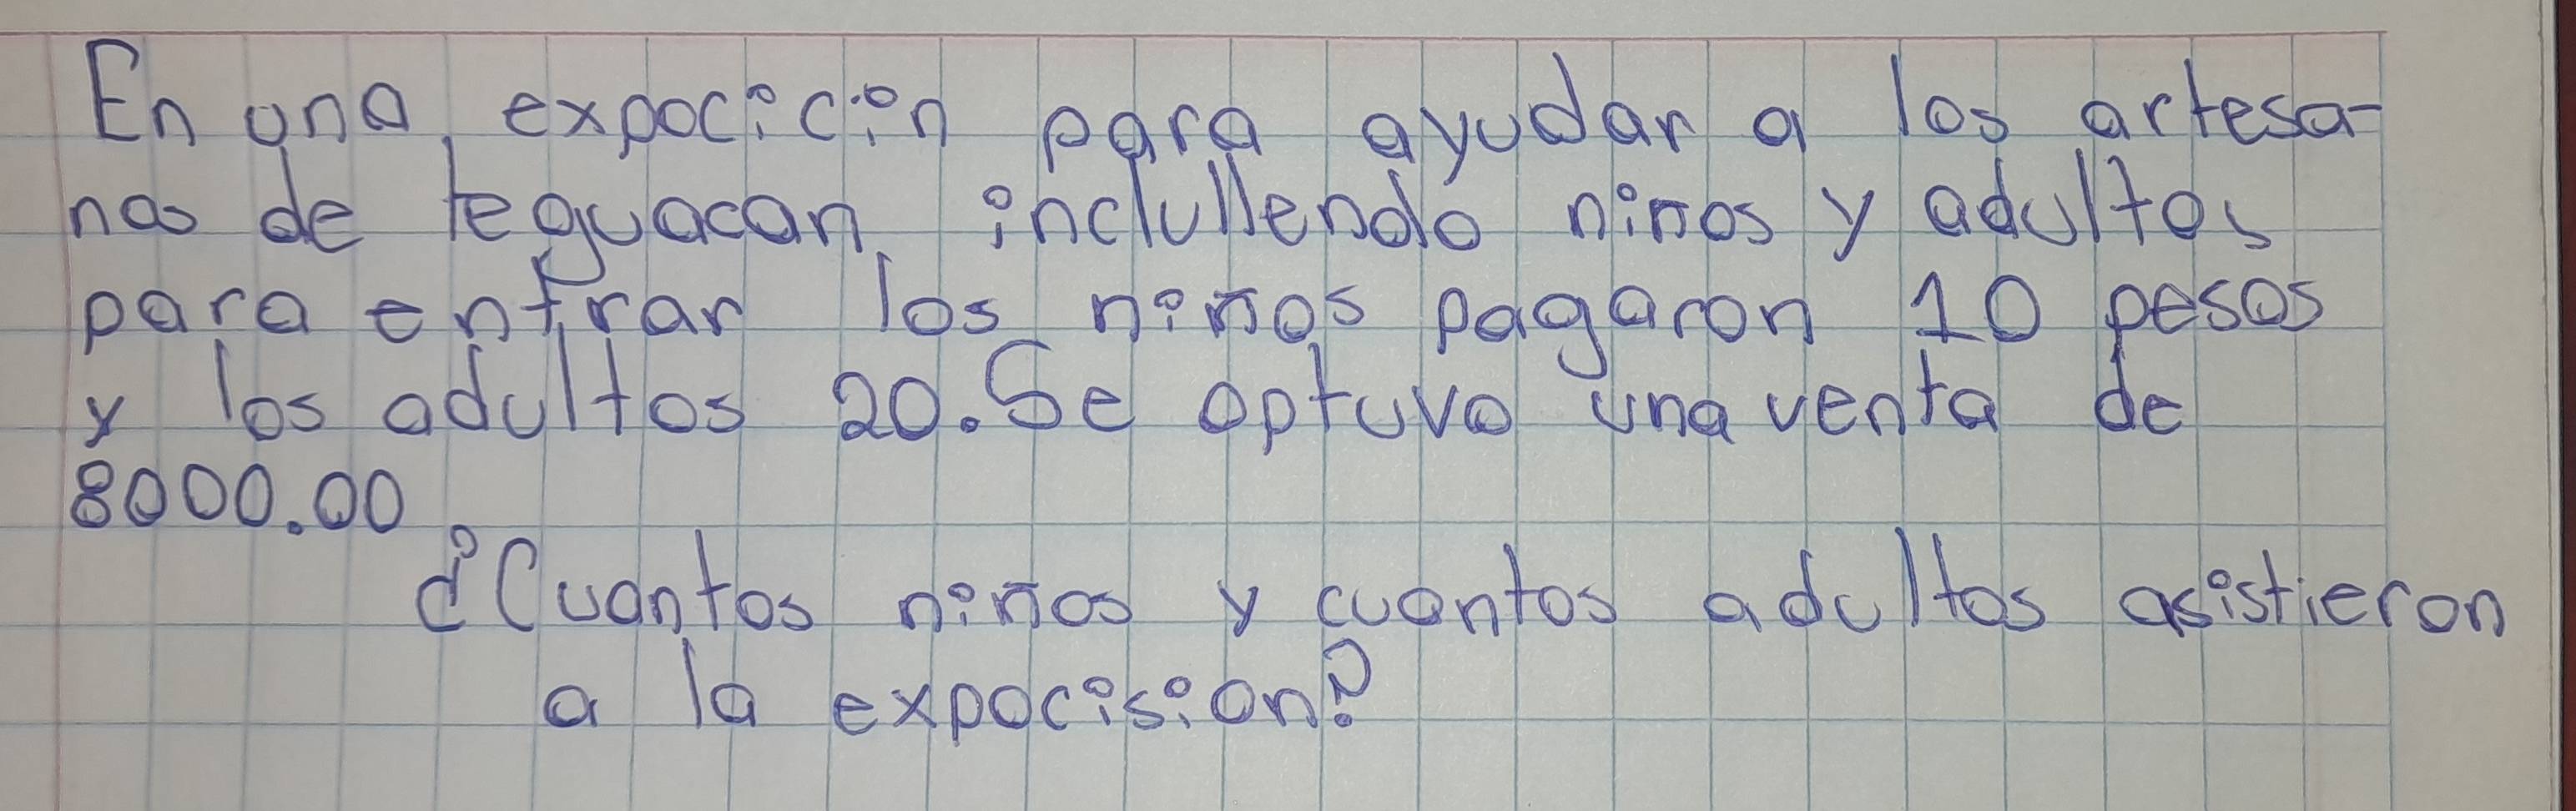 En una expocición para ayudar a los artesa-
nos de teguacan inclullendo niños y adultos
para entrar los niños pagaron 10 pesos
y los adultos 20. Se optuvo una venta de
8000.00
¿Cuantos niños y cuantos adultos asistieron
a la expocision?